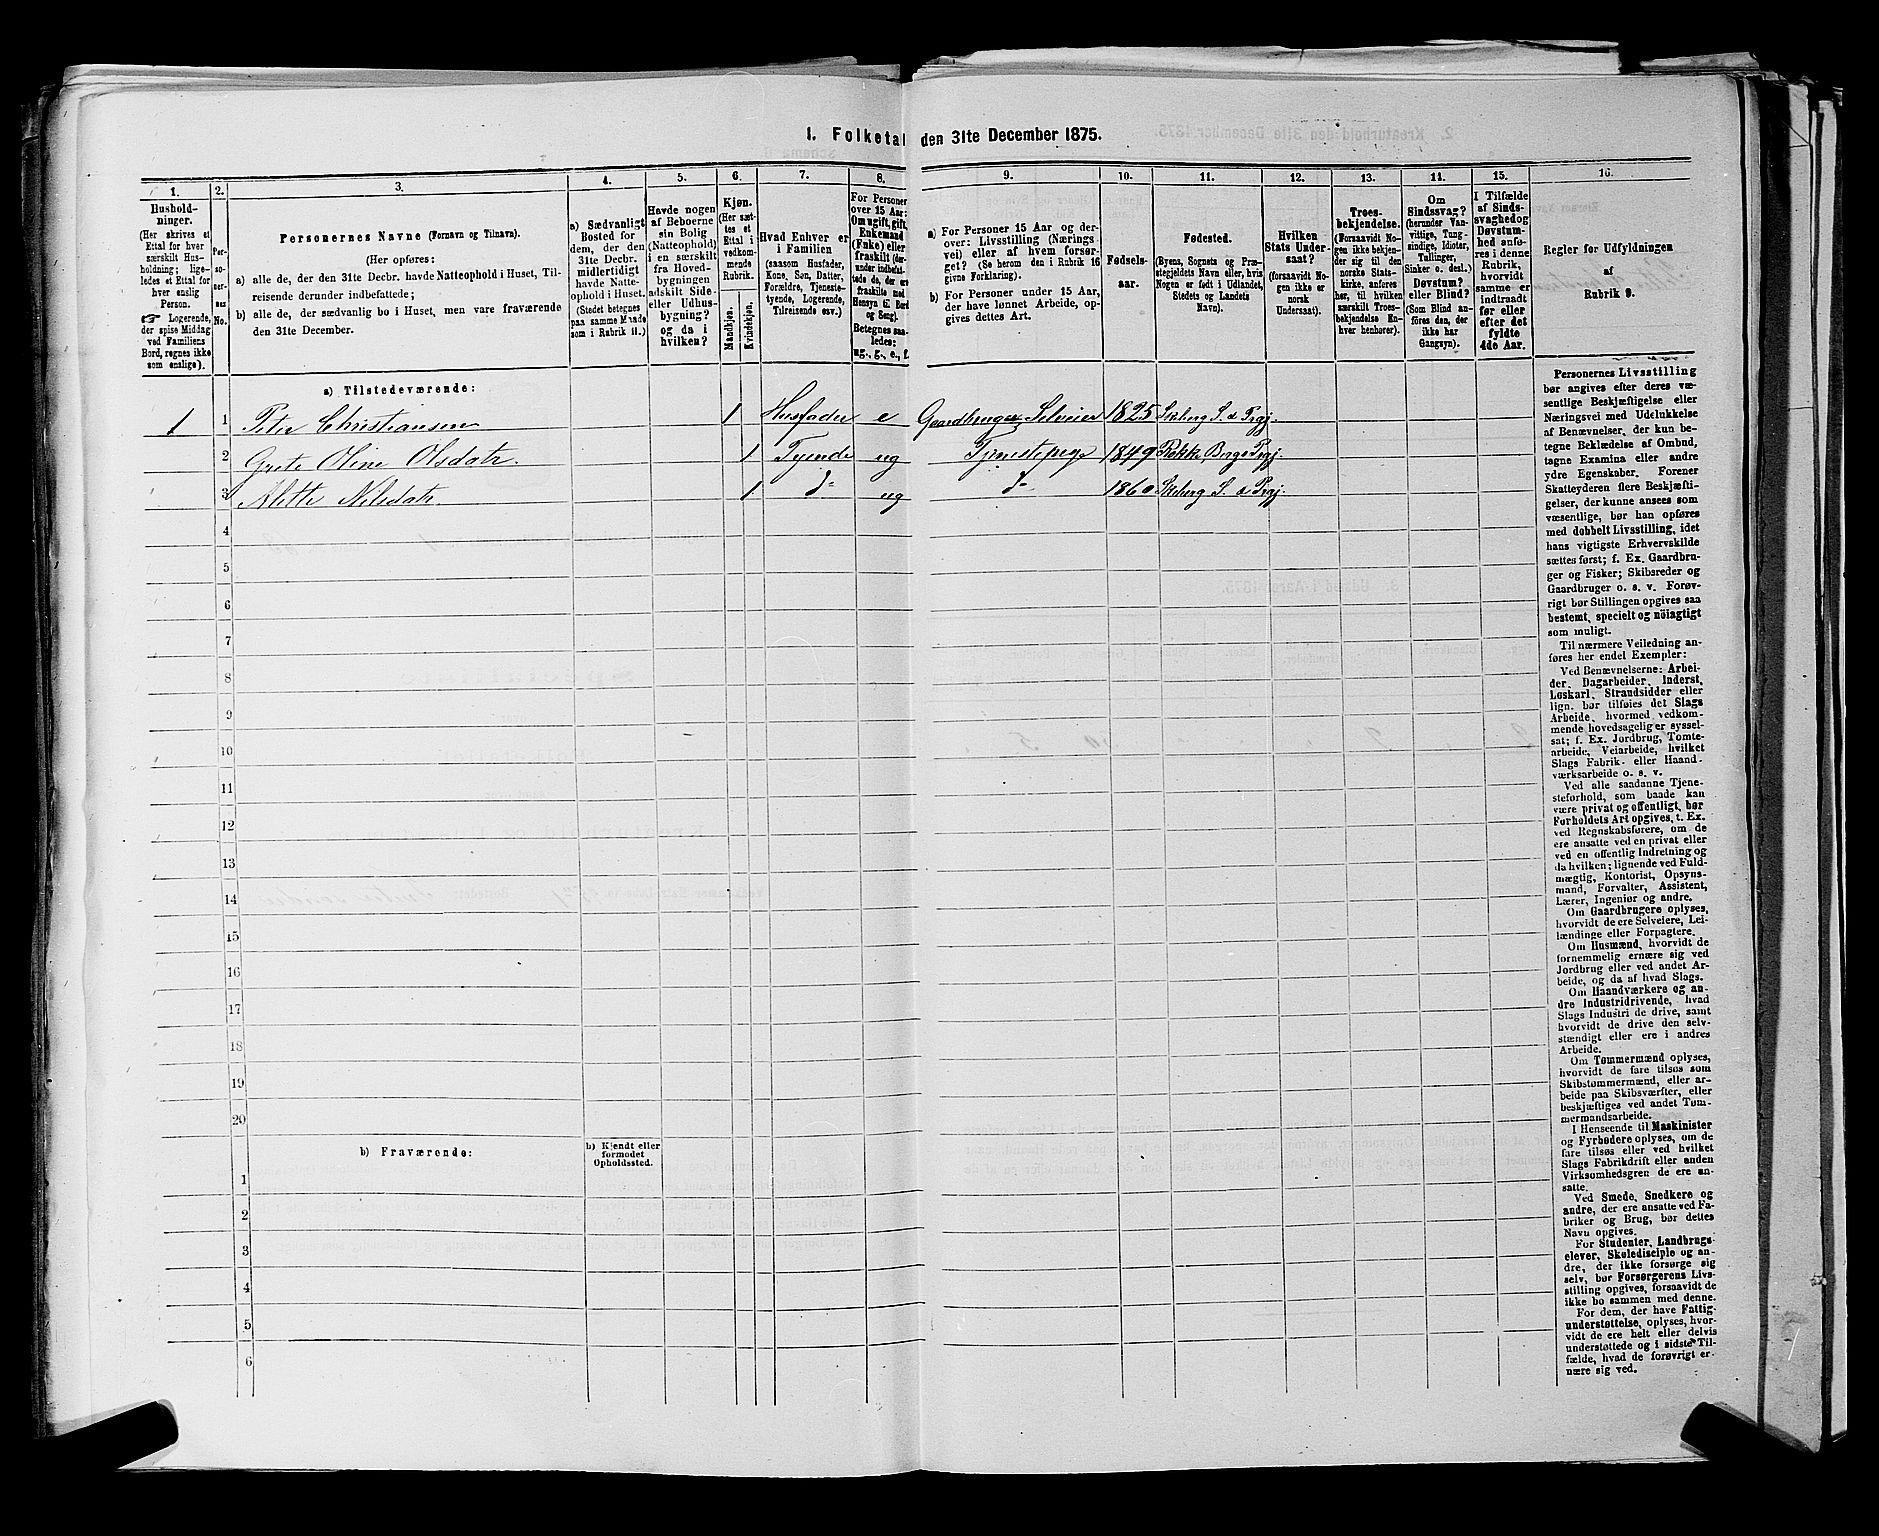 1. Folketal den 31te December 1875.
1. 2. 3. 4. 5. 6. 7. 8. 9. 10. 11. 12. 13. 14. 15. 16.
Hushold-
ninger.
(Her skrives et
Ettal for hver
særskilt Hus-
holdning; lige-
ledes et Ettal for
hver enslig
Person.
☞ Logerende,
der spise Middag
ved Familiens
Bord, regnes ikke
som enslige).
Per-
so-
ner-
nes
No.
Personernes Navne (Fornavn og Tilnavn).
(Her opføres:
a) alle de, der den 31te Decbr. havde Natteophold i Huset, Til-
reisende derunder indbefattede;
b) alle de, der sædvanlig bo i Huset, men vare fraværende
den 31te December.
a) Sædvanligt
Bosted for
dem, der den
31te Decbr.
midlertidigt
havde Natte-
ophold i Huset.
(Stedet betegnes
paa samme Maade
som i Rubrik 11.)
Havde nogen
af Beboerne
sin Bolig
(Natteophold)
i en særskilt
fra Hoved-
bygningen
adskilt Side-
eller Udhus-
bygning?
og da i
hvilken?
Kjøn.
(Her sæt-
tes et
Ettal i
vedkom-
mende
Rubrik.
Mandkjøn.
Kvindekjøn.
Hvad Enhver er
i Familien
(saasom Husfader,
Kone, Søn, Datter,
Forældre, Tjeneste-
tyende, Logerende,
Tilreisende osv.)
For Personer
over 15 Aar:
Om ugift, gift,
Enkemand
(Enke) eller
fraskilt (der-
under indbefat-
tede de, der ere
fraskilte med
Hensyn til Bord
og Seng).
Betegnes saa-
ledes:
ug., g., e., f.
a) For Personer 15 Aar og der-
over: Livsstilling (Nærings-
vei) eller af hvem forsør-
get? (Se herom den i Rubrik 16
givne Forklaring).
b) For Personer under 15 Aar,
der have lønnet Arbeide, op-
gives dettes Art.
Fødsels-
aar.
Fødested.
(Byens, Sognets og Præ-
stegjeldets Navn eller, hvis
Nogen er født i Udlandet,
Stedets og Landets
Navn).
Hvilken
Stats Under-
saat?
(forsaavidt No-
gen ikke er
norsk
Undersaat).
Troes-
bekjendelse.
(Forsaavidt No-
gen ikke bekjen-
der sig til den
norske Stats-
kirke, anføres
her, til hvilken
særskilt Troes-
bekjendelse En-
hver henhører).
Om
Sindssvag?
(herunder Van-
vittige, Tung-
sindige, Idioter,
Tullinger,
Sinker o. desl.)
Døvstum?
eller Blind?
(Som Blind an-
føres den, der
ikke har
Gangsyn).
I Tilfælde
af Sinds-
svaghed og
Døvstum-
hed anfø-
res i denne
Rubrik,
hvorvidt
samme er
indtraadt
før eller
efter det
fyldte
4de Aar.
Regler for Udfyldningen
af
Rubrik 9.
a) Tilstedeværende:
1 1 Peter Christiansen 1 Husfader e Gaardbruger Selveier 1825 Skeberg S. d Prgj.
2 Grete Oline Olsdatr. 1 Tyende ug Tjenestepige 1849 Rokke Bergs Prgj.
3 Alette Nilsdatr. 1 do ug do 1860 Skeberg S. d Prgj.
4
5
6
7
8
9
10
11
12
13
14
15
16
17
18
19
20
b) Fraværende:
b) Kjendt eller
formodet
Opholdssted.
1
2
3
4
5
6
Personernes Livsstilling
bør angives efter deres væ-
sentlige Beskjæftigelse eller
Næringsvei med Udelukkelse
af Benævnelser, der kun be-
tegne Beklædelse af Ombud,
tagne Examina eller andre
ydre Egenskaber. Forener
Skatteyderen flere Beskjæfti-
gelser, der kunne ansees som
væsentlige, bør han opføres
med dobbelt Livsstilling, idet
hans vigtigste Erhvervskilde
sættes først; f. Ex. Gaardbru-
ger og Fisker; Skibsreder og
Gaardbruger o. s. v. Forøv-
rigt bør Stillingen opgives saa
bestemt, specielt og nöiagtigt
som muligt.
Til nærmere Veiledning an-
føres her endel Exempler:
Ved Benævnelserne: Arbei-
der, Dagarbeider, Inderst,
Løskarl, Strandsidder eller
lign. bør tilføies det Slags
Arbeide, hvormed vedkom-
mende hovedsagelig er syssel-
sat; f. Ex. Jordbrug, Tomte-
arbeide, Veiarbeide, hvilket
Slags Fabrik- eller Haand-
værksarbeide o. s. v.
Ved alle saadanne Tjene-
steforhold, som baade kan
være privat og offentligt, bør
Forholdets Art opgives, t. Ex.
ved Regnskabsførere, om de
ere ansatte ved en privat eller
ved en offentlig Indretning og
da hvilken; lignende ved Fuld-
mægtig, Kontorist, Opsyns-
mand, Forvalter, Assistent,
Lærer, Ingeniør og andre.
Om Gaardbrugere oplyses,
hvorvidt de ere Selveiere, Lei-
lændinge eller Forpagtere.
Om Husmænd, hvorvidt de
fornemmelig ernære sig ved
Jordbrug eller ved andet Ar-
beide, og da af hvad Slags.
Om Haandværkere og an-
dre Industridrivende, hvad
Slags Industri de drive, samt
hvorvidt de drive den selv-
stændigt eller ere i andres
Arbeide.
Om Tømmermænd oplyses,
hvorvidt de fare tilsøs som
Skibstømmermænd, eller ar-
beide paa Skibsværfter, eller
beskjæftiges ved andet Tøm-
mermandsarbeide.
I Henseende til Maskinister
og Fyrbødere oplyses, om de
fare tilsøs eller ved hvilket
Slags Fabrikdrift eller anden
Virksomhedsgren de ere an-
satte.
Ved Smede, Snedkere og
andre, der ere ansatte ved Fa-
briker og Brug, bør dettes
Navn opgives.
For Studenter, Landbrugs-
elever, Skoledisciple og an-
dre, der ikke forsørge sig
selv, bør Forsørgerens Livs-
stilling opgives, forsaavidt de
ikke bo sammen med denne.
For dem, der have Fattig-
understøttelse, oplyses, hvor-
vidt de ere helt eller delvis
understøttede og i sidste Til-
fælde, hvad de forøvrigt er-
nære sig ved.